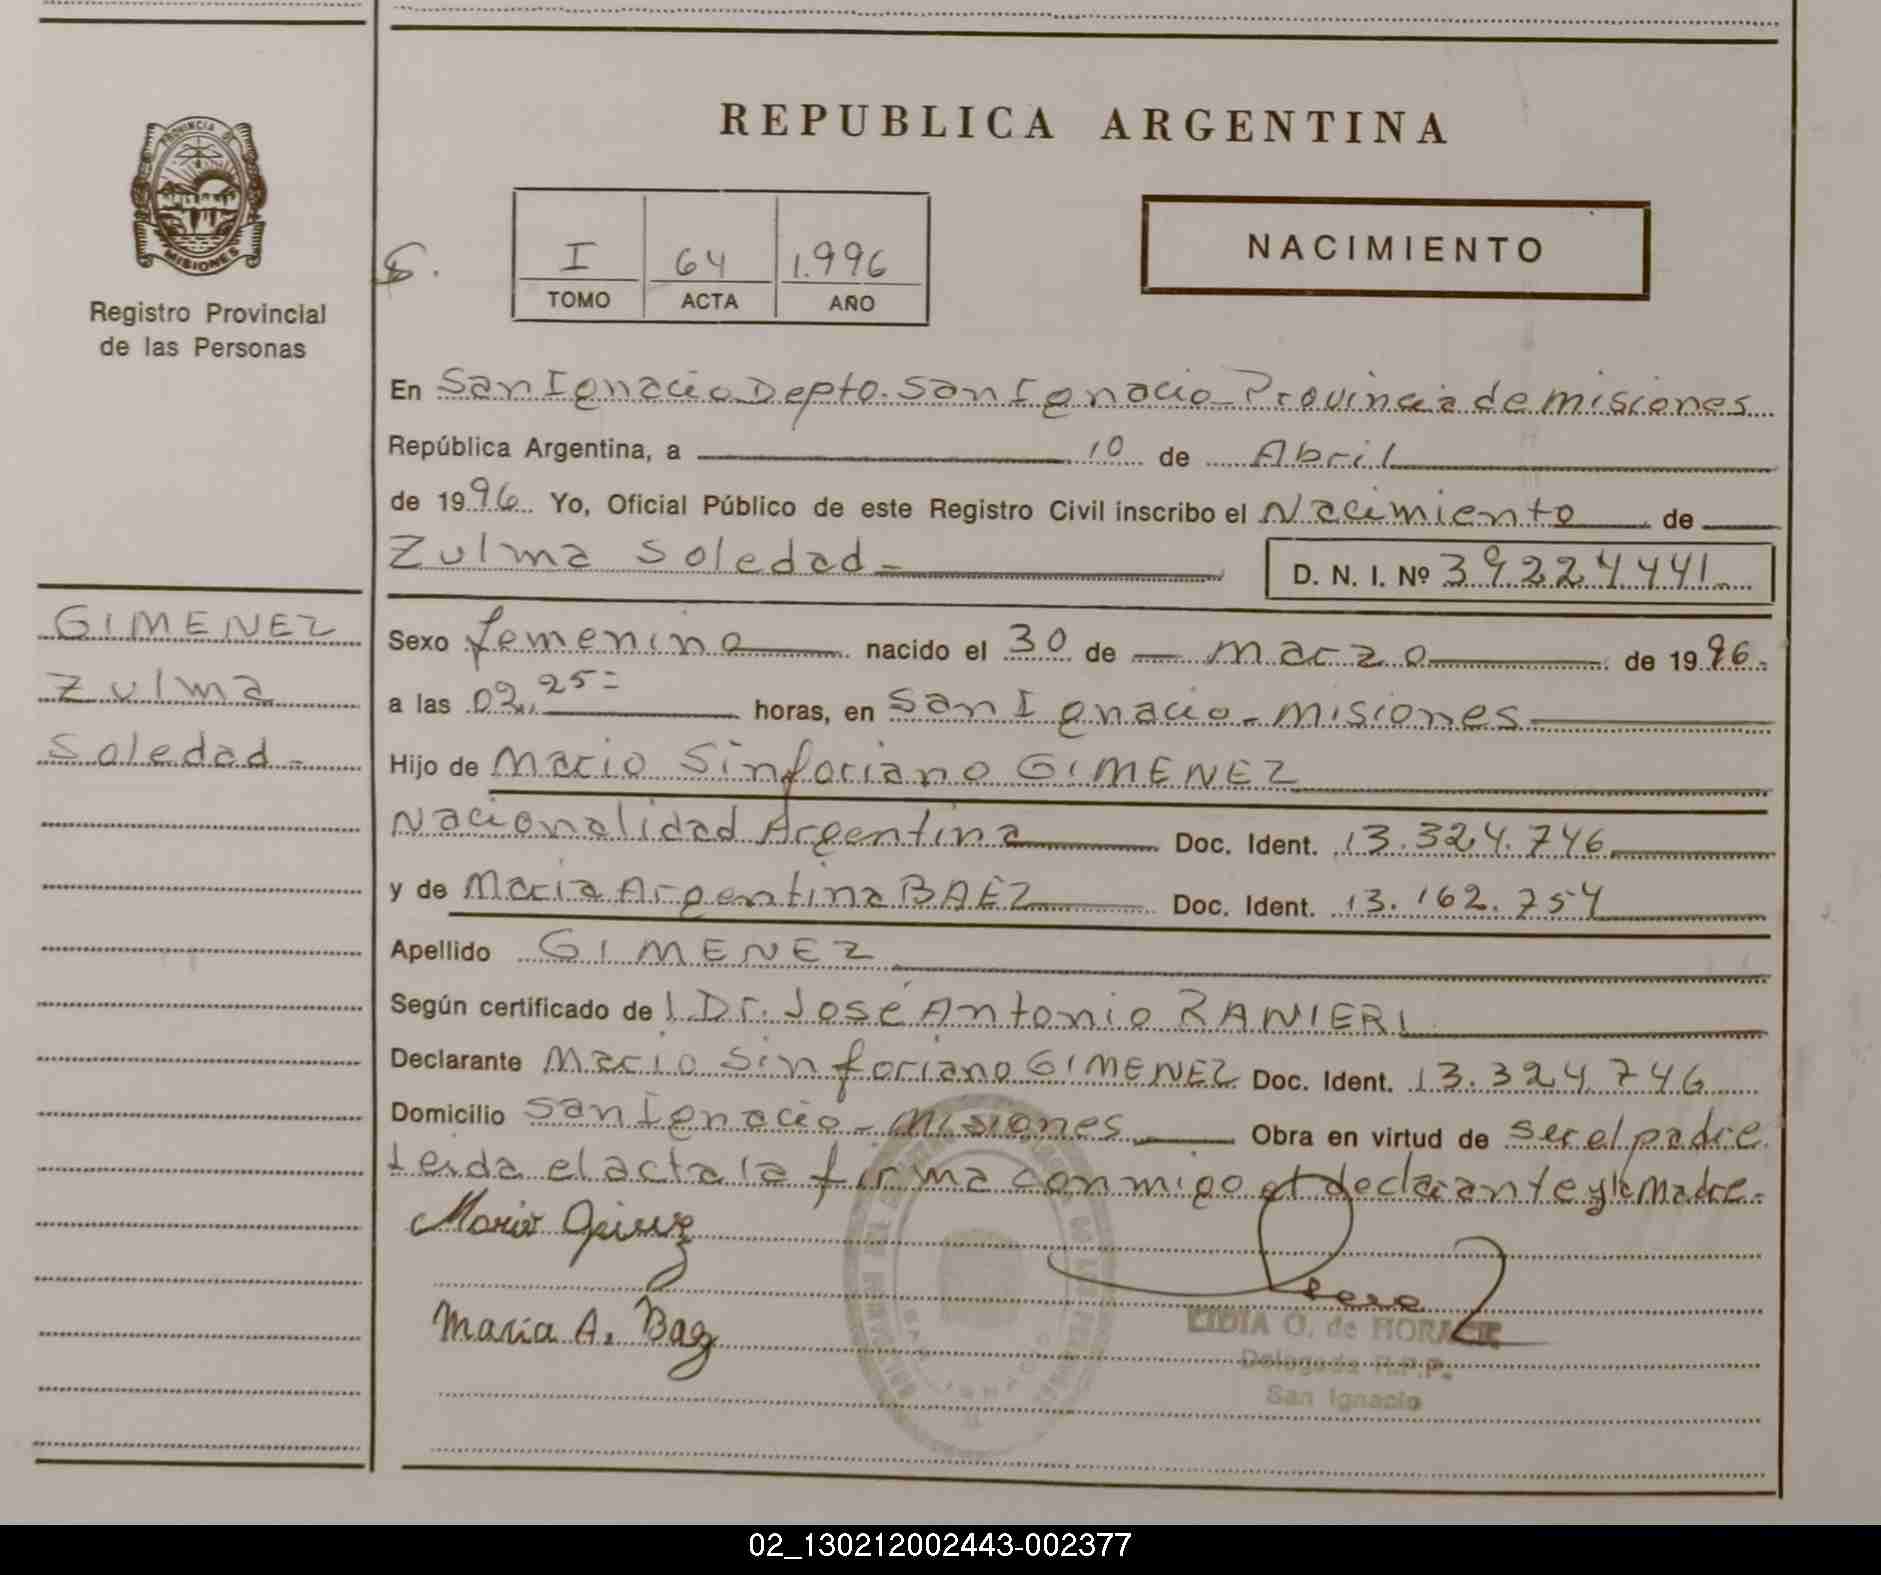 REPUBLICA ARGENTINA
PROVINCIA DE
MISIONES
Registro Provincial
de las Personas
I 64 1.996
TOMO ACTA AÑO
NACIMIENTO
En San Ignacio Depto. San Ignacio Provincia de misiones
República Argentina, a 10 de Abril
de 1996 Yo, Oficial Público de este Registro Civil inscribo el Nacimiento de
Zulma Soledad D. N. I. Nº 39224441
GIMENEZ
Zulma
Soledad
Sexo femenino nacido el 30 de marzo de 1996
a las 09,25 horas, en San Ignacio - misiones
Hijo de Mario Sinforiano GIMENEZ
Nacionalidad Argentina Doc. Ident. 13.324.746
y de Maria Argentina BAEZ Doc. Ident. 13.162.754
Apellido GIMENEZ
Según certificado de l Dr. José Antonio RANIERI
Declarante Mario Sinforiano GIMENEZ Doc. Ident. 13.324.746
Domicilio San Ignacio - misiones Obra en virtud de ser el padre
Leida el acta la firma conmigo el declarante y la madre.
Maria A. Baez
LIDIA O. de
Delegada R.P.P.
San Ignacio
02_130212002443-002377